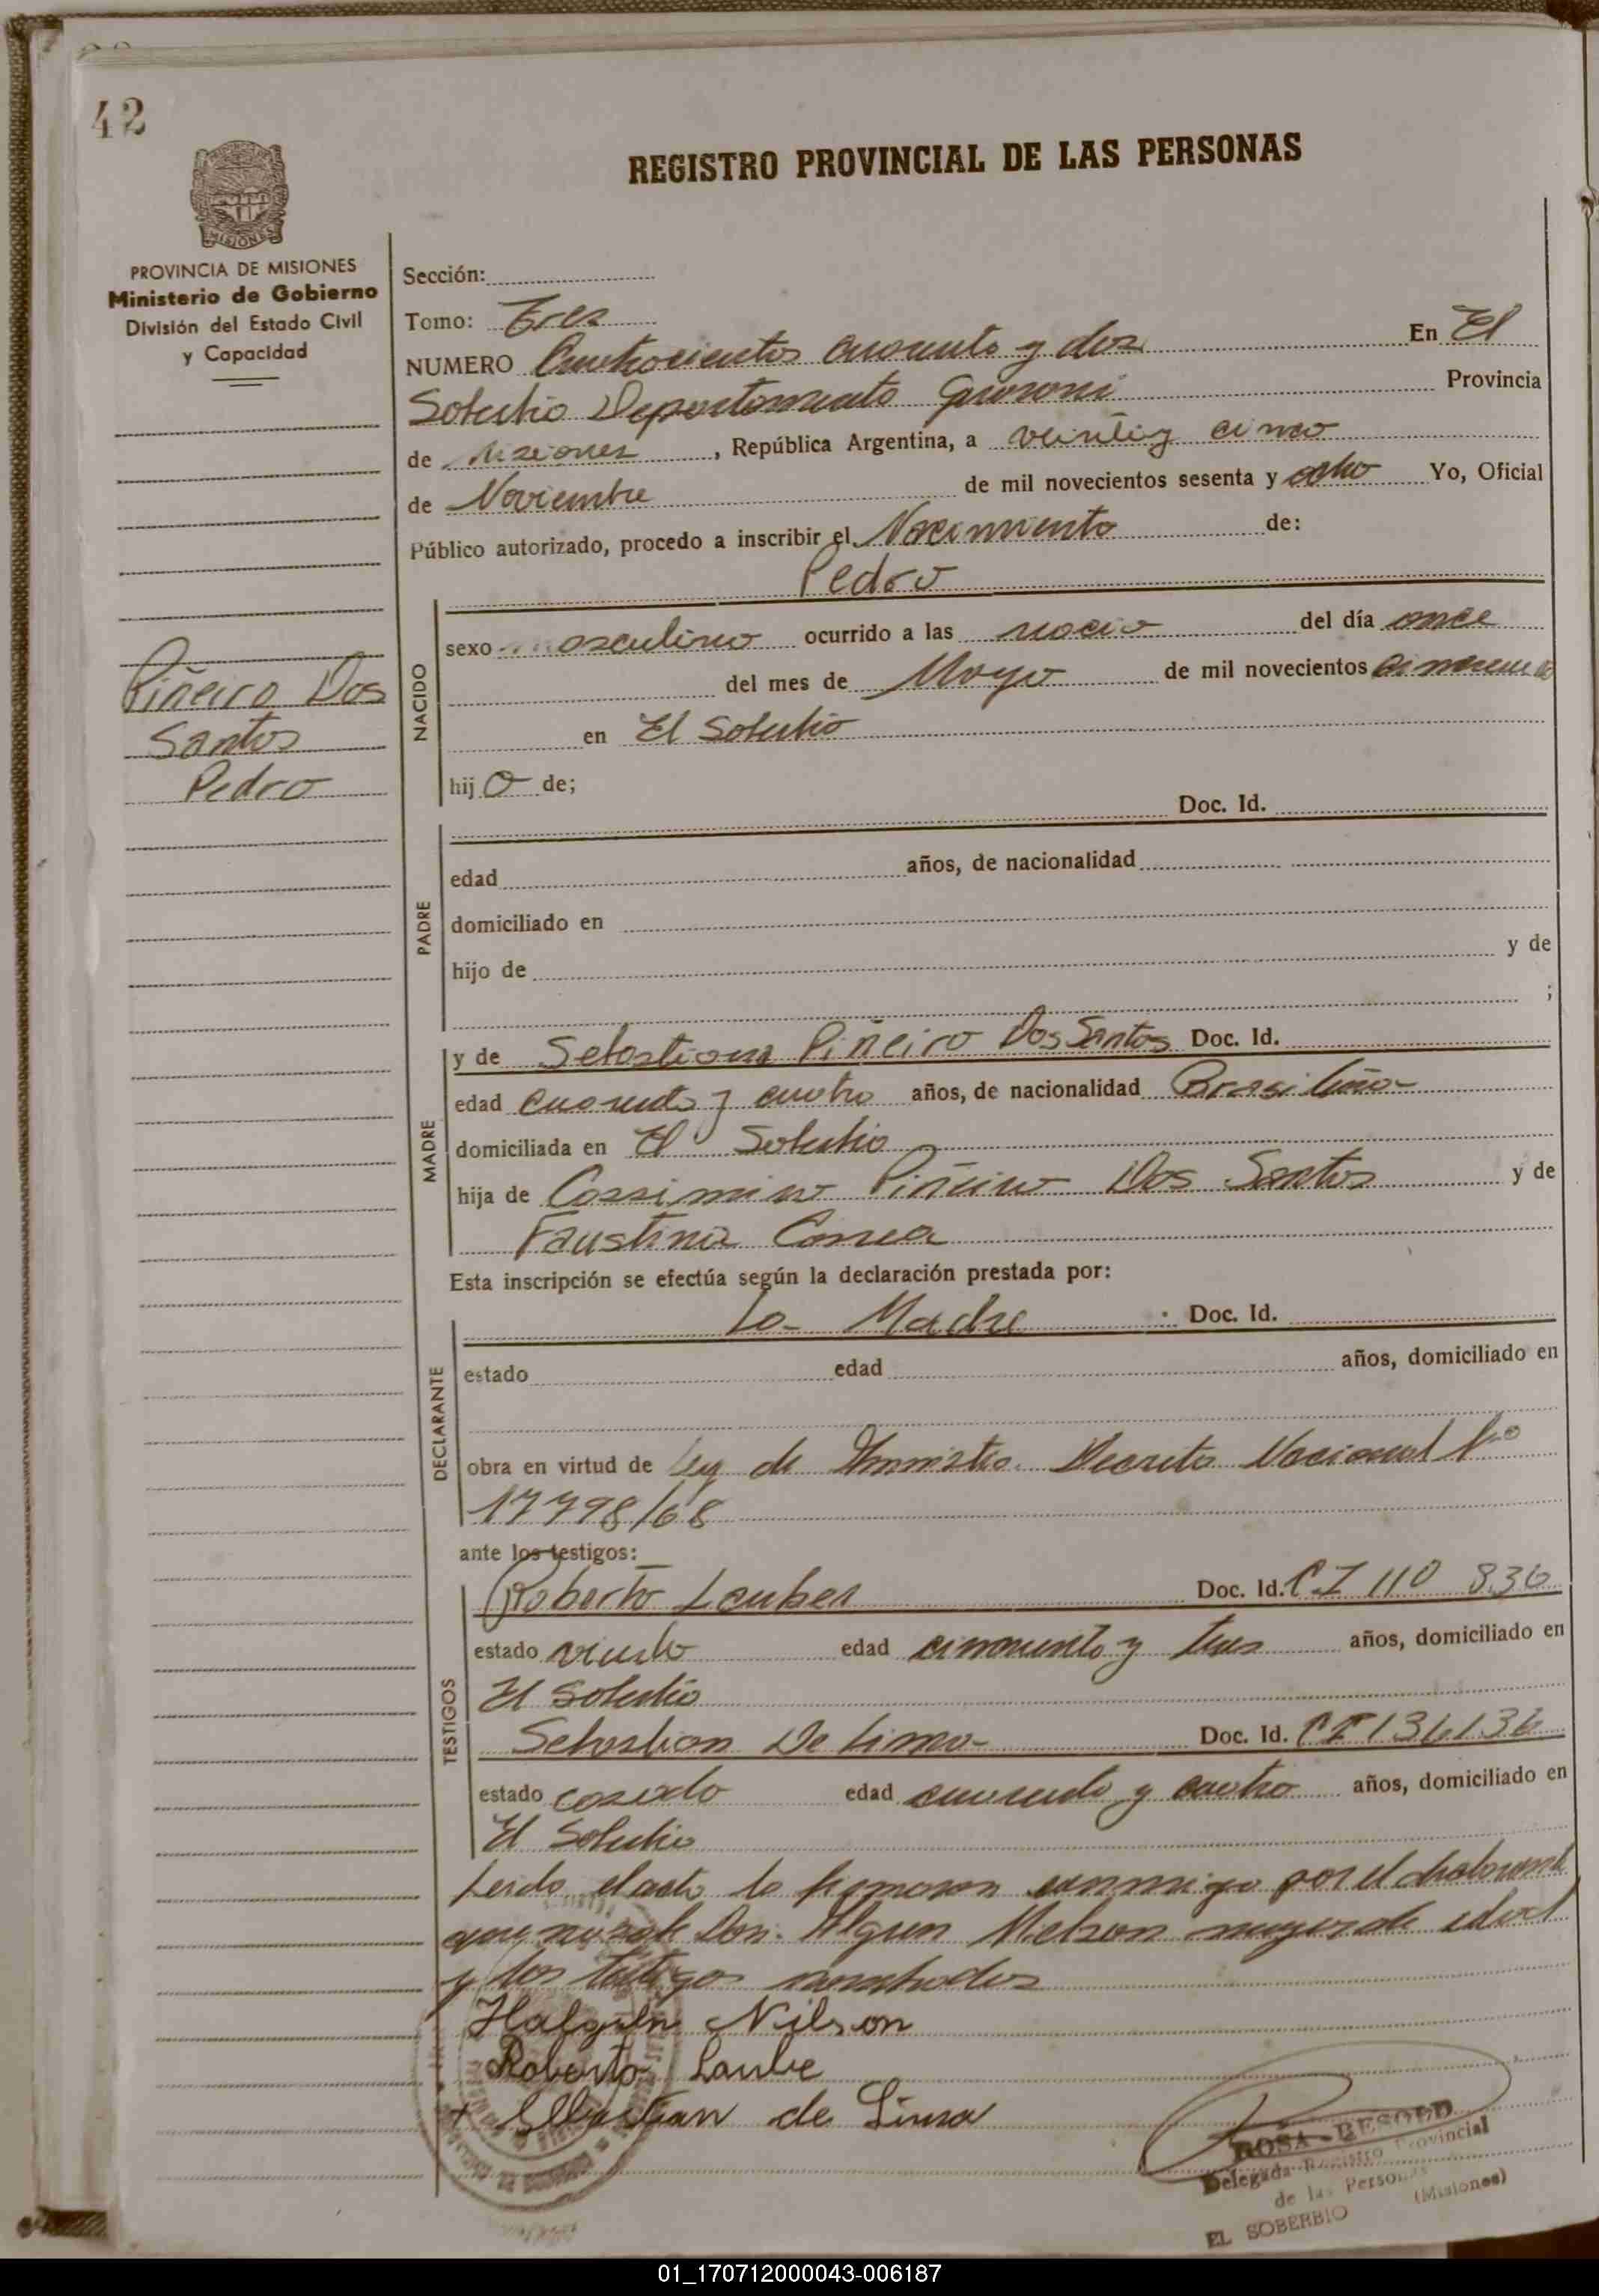 42
REGISTRO PROVINCIAL DE LAS PERSONAS
MISIONES
PROVINCIA DE MISIONES
Ministerio de Gobierno
División del Estado Civil
y Capacidad
Piñeiro Dos
Santos
Pedro
Sección:
Tomo: Tres
NUMERO Cuatrocientos cuarenta y dos En El
Soberbio Departamento Guarani Provincia
de Misiones, República Argentina, a veinte y cinco
de Noviembre de mil novecientos sesenta y ocho Yo, Oficial
Público autorizado, procedo a inscribir el Nacimiento de:
Pedro
NACIDO
sexo masculino ocurrido a las del día once
del mes de Mayo de mil novecientos
en El Soberbio
hijo de;
PADRE
Doc. Id.
edad años, de nacionalidad
domiciliado en
hijo de y de
;
MADRE
y de Sebastiana Piñeiro Dos Santos Doc. Id.
edad cuarenta y cuatro años, de nacionalidad Brasileña
domiciliada en El Soberbio
hija de Cassimiro Piñeiro Dos Santos y de
Faustina Correa
Esta inscripción se efectúa según la declaración prestada por:
DECLARANTE
La Madre Doc. Id.
estado edad años, domiciliado en
obra en virtud de Ley de Amnistia Decreto Nacional Nº
17798/68
ante los testigos:
TESTIGOS
Roberto Doc. Id. CI 110 836
estado viudo edad cincuenta y tres años, domiciliado en
El Soberbio
Sebastian De Lima Doc. Id. CI 136136
estado casado edad cuarenta y cuatro años, domiciliado en
El Soberbio
Leido el acta la firmaron conmigo por el
que no sabe Don. mayor de edad
y los testigos
Nilson
Roberto Laube
Sebastian de Lima
ROSA BESOLD
Delegada Registro Provincial
de las Personas
EL SOBERBIO (Misiones)
01_170712000043-006187